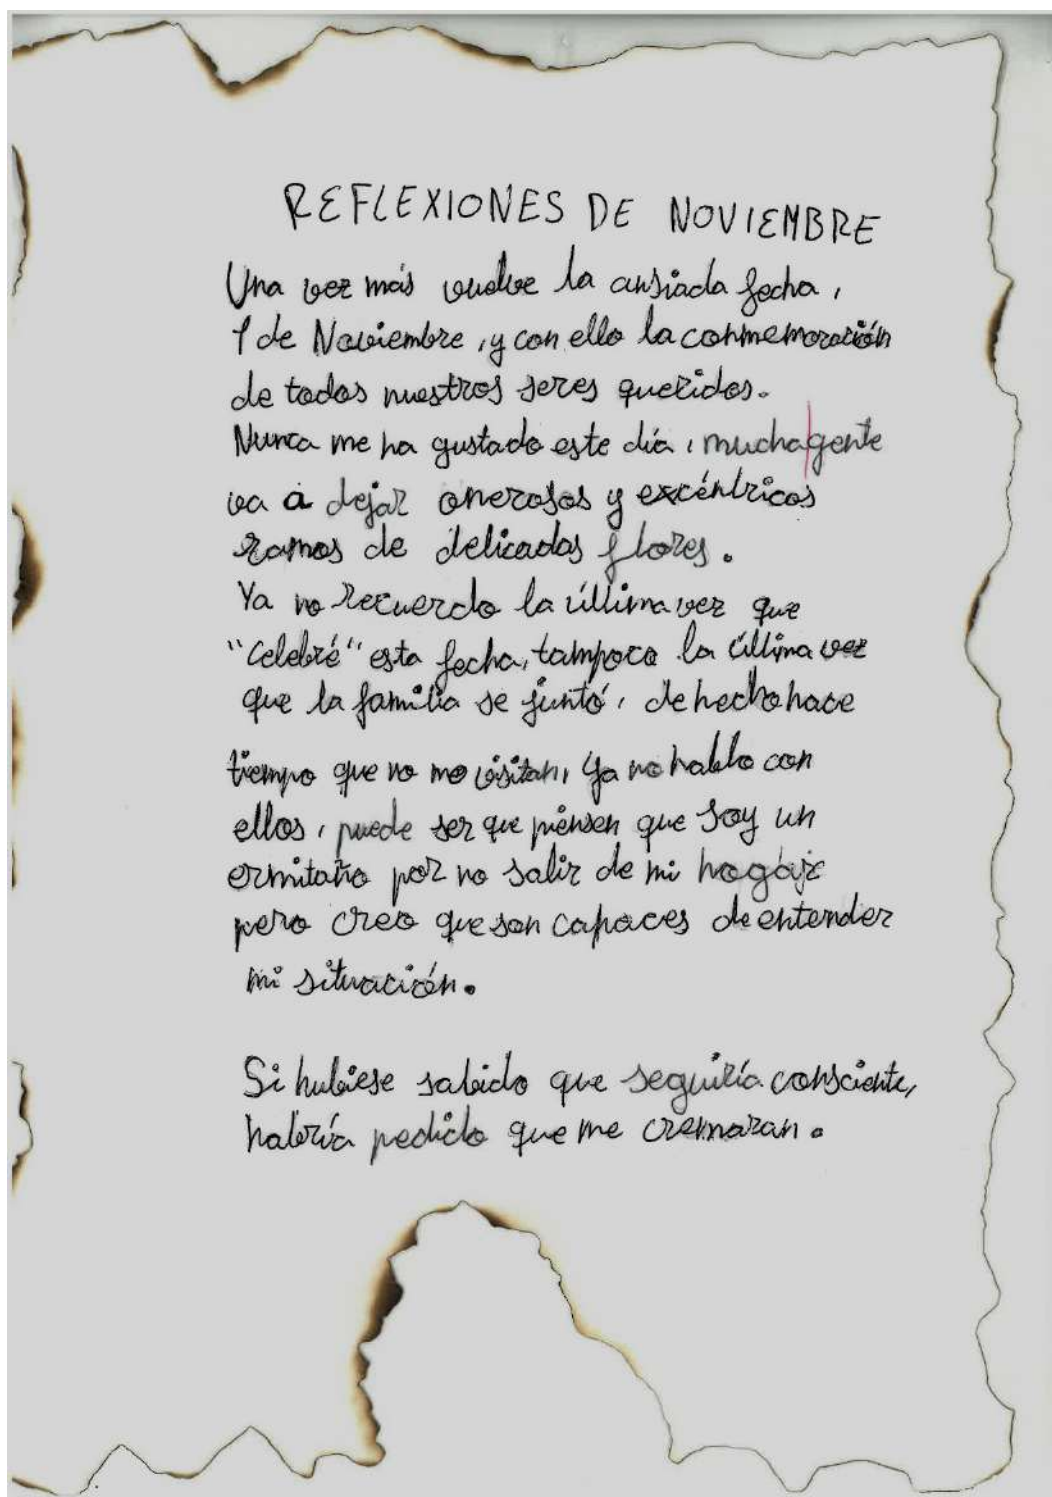 REFLEXIONES DE NOVIEMBRE
Una vez más vuelve la ansiada fecha,
1 de Noviembre, y con ello la conmemoración
de todos nuestros seres queridos.
Nunca me ha gustado este día, mucha gente
va a dejar onerosos y excéntricos
ramos de delicadas flores.
Ya no recuerdo la última vez que
"celebré" esta fecha, tampoco la última vez
que la familia se juntó, de hecho hace
tiempo que no me visitan, Ya no hablo con
ellos, puede ser que piensen que soy un
ermitaño por no salir de mi hogar
pero creo que son capaces de entender
mi situación.
Si hubiese sabido que seguiría consciente,
habría pedido que me cremaran.